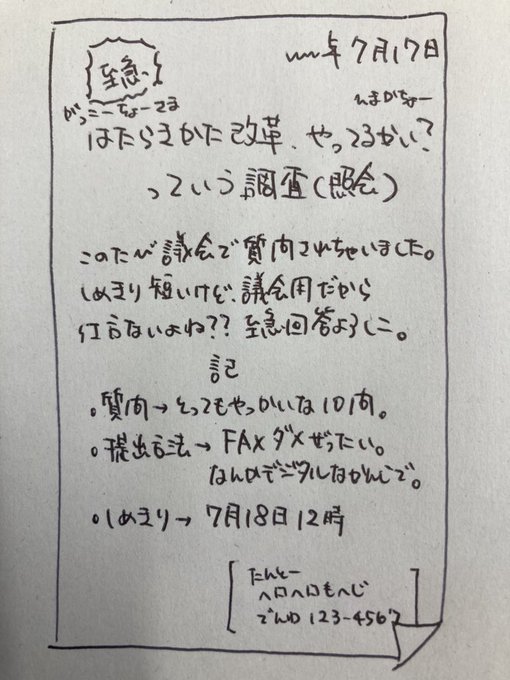 至急、
年7月17日
がっこーちょーさま
んまがちょー
はたらきかた改革、やってるかい?
っていう調査(照会)
このたび議会で質問されちゃいました。
しめきり短いけど、議会用だから
仕方ないよね?? 至急回答よろしこ。
記
・質問→とってもやっかいな10問。
・提出方法→FAXダメぜったい。
なんかデジタルなかんじで。
・しめきり→7月18日12時
たんとー
ヘロヘロもへじ
でんわ 123-4567